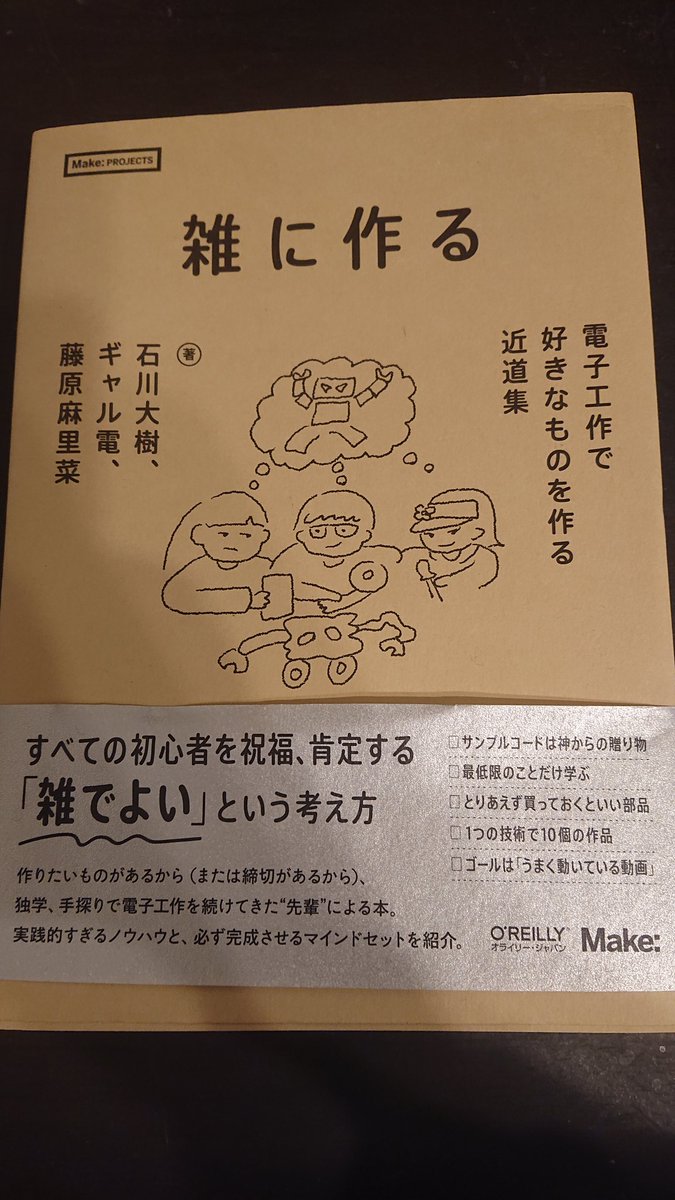 Make: PROJECTS
雑に作る
電子工作で
好きなものを作る
近道集
著
石川大樹、
ギャル電、
藤原麻里菜
すべての初心者を祝福、肯定する
「雑でよい」という考え方
作りたいものがあるから（または締切があるから）、
独学、手探りで電子工作を続けてきた“先輩”による本。
実践的すぎるノウハウと、必ず完成させるマインドセットを紹介。
□サンプルコードは神からの贈り物
□最低限のことだけ学ぶ
□とりあえず買っておくといい部品
□1つの技術で10個の作品
□ゴールは「うまく動いている動画」
O'REILLY
オライリー・ジャパン
Make: